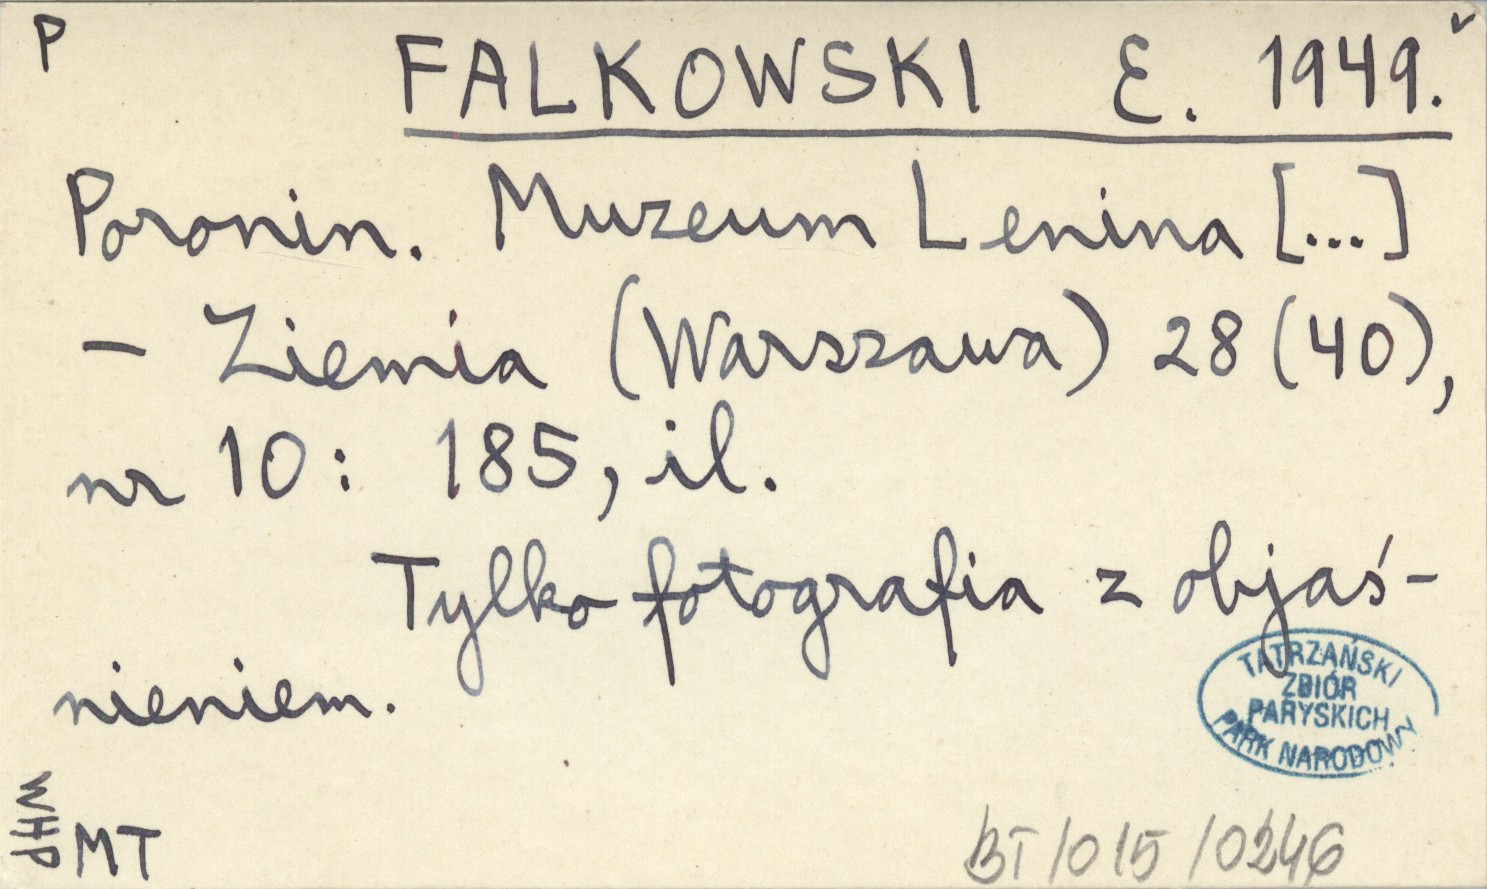 P
FALKOWSKI E. 1949. v
Poronin. Muzeum Lenina [...]
– Ziemia (Warszawa) 28 (40),
nr 10: 185, il.
Tylko fotografia z objaś-
nieniem.
TATRZAŃSKI
ZBIÓR
PARYSKICH
PARK NARODOWY
WHP
MT
BT/015/0246